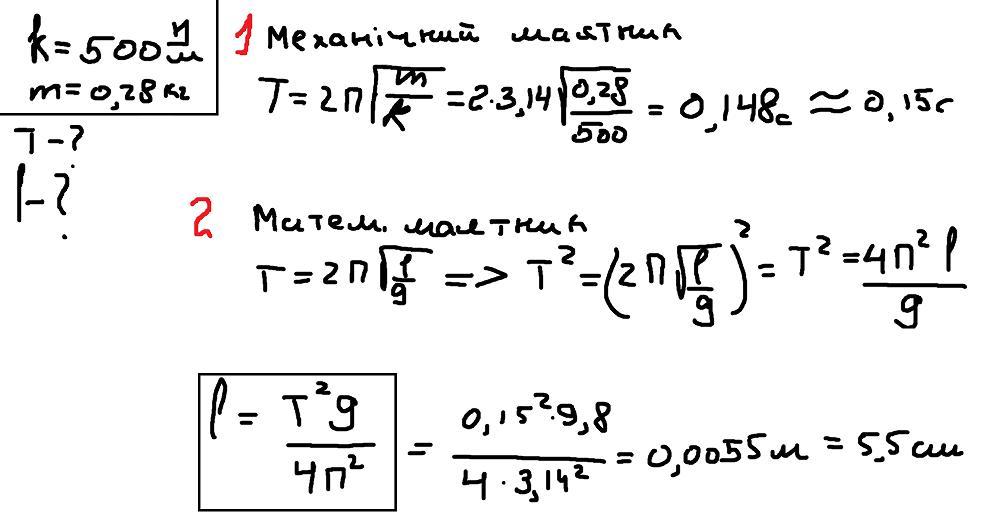 k = 500 н/м
m = 0,28 кг
T - ?
l - ?
1 Механічний маятник
T = 2π√(m/k) = 2·3,14√(0,28/500) = 0,148с ≈ 0,15с
2 Матем. маятник
T = 2π√(l/g) => T² = (2π√(l/g))² = T² = 4π² l / g
l = T²g / 4π² = 0,15²·9,8 / 4·3,14² = 0,0055м = 5,5см